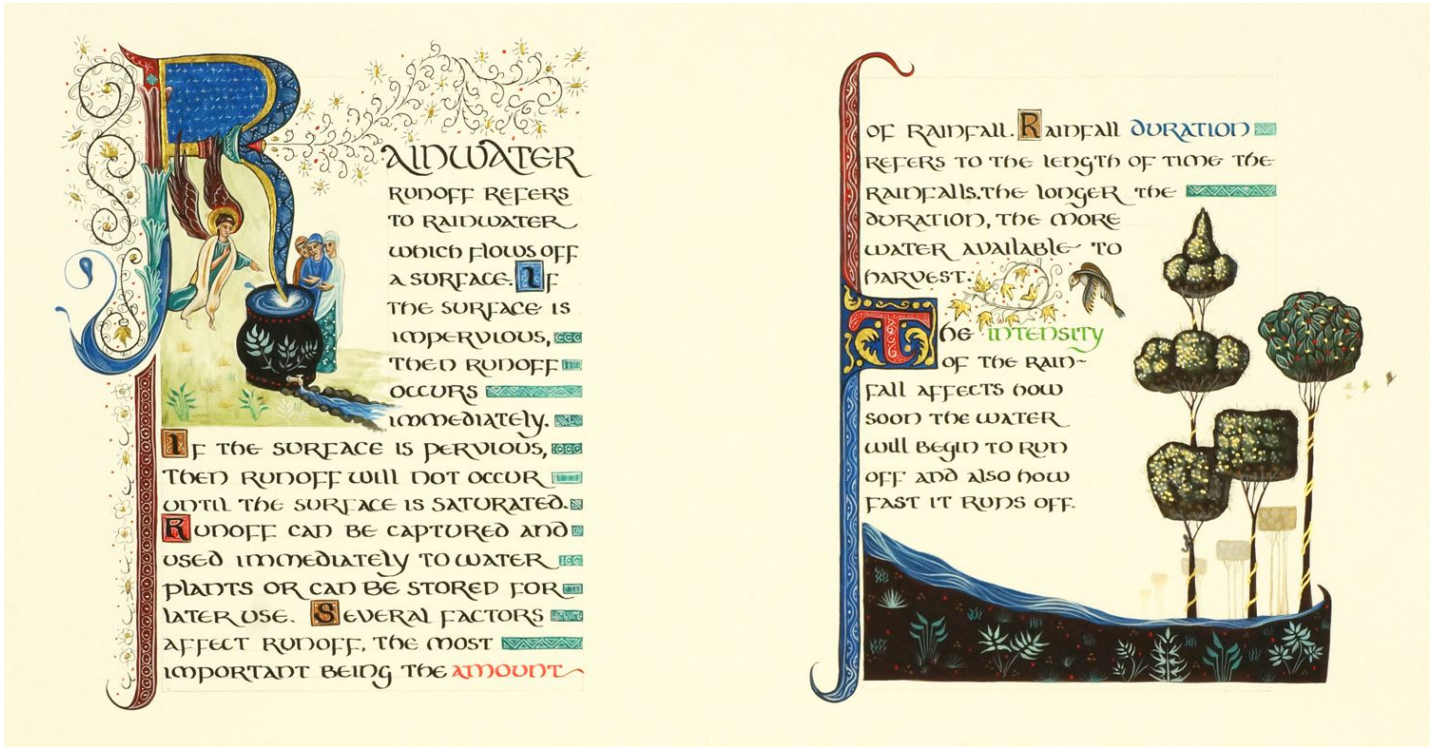 RAINWATER
RUNOFF REFERS
TO RAINWATER
WHICH FLOWS OFF
A SURFACE. IF
THE SURFACE IS
IMPERVIOUS,
THEN RUNOFF
OCCURS
IMMEDIATELY.
IF THE SURFACE IS PERVIOUS,
THEN RUNOFF WILL NOT OCCUR
UNTIL THE SURFACE IS SATURATED.
RUNOFF CAN BE CAPTURED AND
USED IMMEDIATELY TO WATER
PLANTS OR CAN BE STORED FOR
LATER USE. SEVERAL FACTORS
AFFECT RUNOFF, THE MOST
IMPORTANT BEING THE AMOUNT
OF RAINFALL. RAINFALL DURATION
REFERS TO THE LENGTH OF TIME THE
RAINFALLS. THE LONGER THE
DURATION, THE MORE
WATER AVAILABLE TO
HARVEST.
THE INTENSITY
OF THE RAIN-
FALL AFFECTS HOW
SOON THE WATER
WILL BEGIN TO RUN
OFF AND ALSO HOW
FAST IT RUNS OFF.